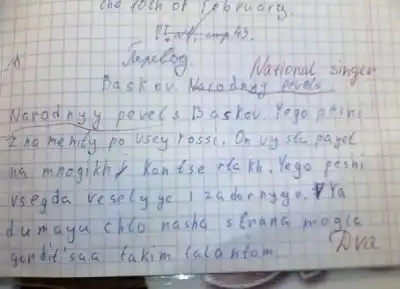 the 10th of February.
Перевод.
National singer
Baskov Narodnyy pevets
Narodnyy pevets Baskov. Yego pesni
znamenity po vsey rossi. On vystupayet
na mnogikh kontsertakh. Yego pesni
vsegda veselyye i zadornyye. Ya
dumayu chto nasha strana mogla
gordit'saa takim talantom
Dva